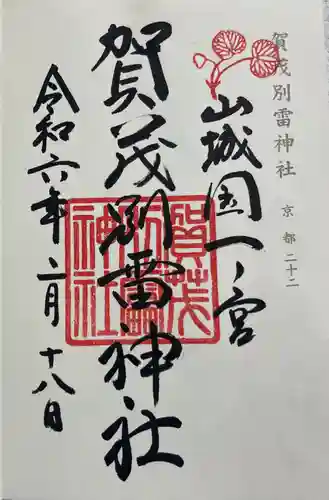 賀茂別雷神社 京都二十二
山城国一ノ宮
賀茂別雷神社
令和六年二月十八日
賀茂別雷神社